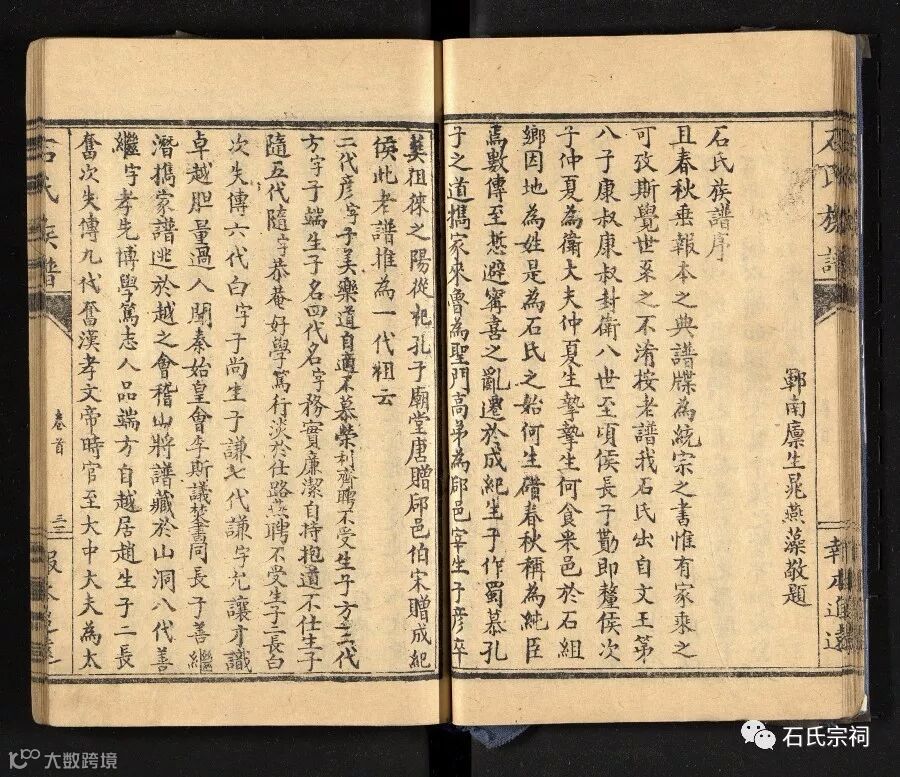 石氏族譜
報本追遠
鄆南廩生晁燕藻敬題
石氏族譜序
且春秋垂報本之典譜牒為統宗之書惟有家乘之
可孜斯覺世系之不淆按老譜我石氏出自文王第
八子康叔康叔封衛八世至頃侯長子勤即釐侯次
子仲夏為衛大夫仲夏生摯摯生何食采邑於石組
鄉因地為姓是為石氏之始何生碏春秋稱為純臣
焉數傳至悊避甯喜之亂遷於成紀生子作蜀慕孔
子之道攜家來魯為聖門高弟為郈邑宰生子彥卒
葬徂徠之陽從祀孔子廟堂唐贈郈邑伯宋贈成紀
侯此老譜推為一代祖云
二代彥字子美樂道自適不慕榮利齊聘不受生子方三代
方字子端生子名四代名字務實廉潔自持抱道不仕生子
隨五代隨字恭菴好學篤行淡於仕路燕聘不受生子二長白
次失傳六代白字子尚生子謙七代謙字允讓才識
卓越胆量過人聞秦始皇會李斯議焚書同長子善繼
潛攜家譜逃於越之會稽山將譜藏於山洞八代善
繼字孝先博學篤志人品端方自越居趙生子二長
奮次失傳九代奮漢孝文帝時官至大中大夫為太
石氏族譜
卷首
三二
報本追遠
石氏宗祠
大数跨境